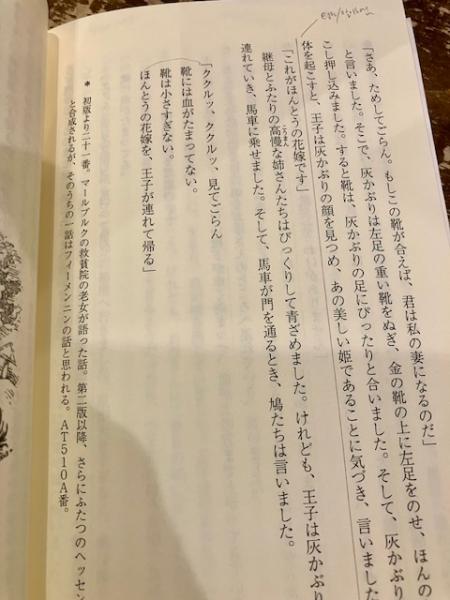 「さあ、ためしてごらん。もしこの靴が合えば、君は私の妻になるのだ」
と言いました。そこで、灰かぶりは左足の重い靴をぬぎ、金の靴の上に左足をのせ、ほんの
こし押し込みました。すると靴は、灰かぶりの足にぴったりと合いました。そして、灰かぶり
体を起こすと、王子は灰かぶりの顔を見つめ、あの美しい姫であることに気づき、言いました
「これがほんとうの花嫁です」
継母とふたりの高慢な姉さんたちはびっくりして青ざめました。けれども、王子は灰かぶり
ごうまん
連れていき、馬車に乗せました。そして、馬車が門を通るとき、鳩たちは言いました。
「ククルッ、ククルッ、見てごらん
靴には血がたまってない。
靴は小さすぎない。
ほんとうの花嫁を、王子が連れて帰る」
* 初版より二十一番。マールブルクの救貧院の老女が語った話。第二版以降、さらにふたつのヘッセン
と合成されるが、そのうちの一話はフィーメンニンの話と思われる。AT510A番。